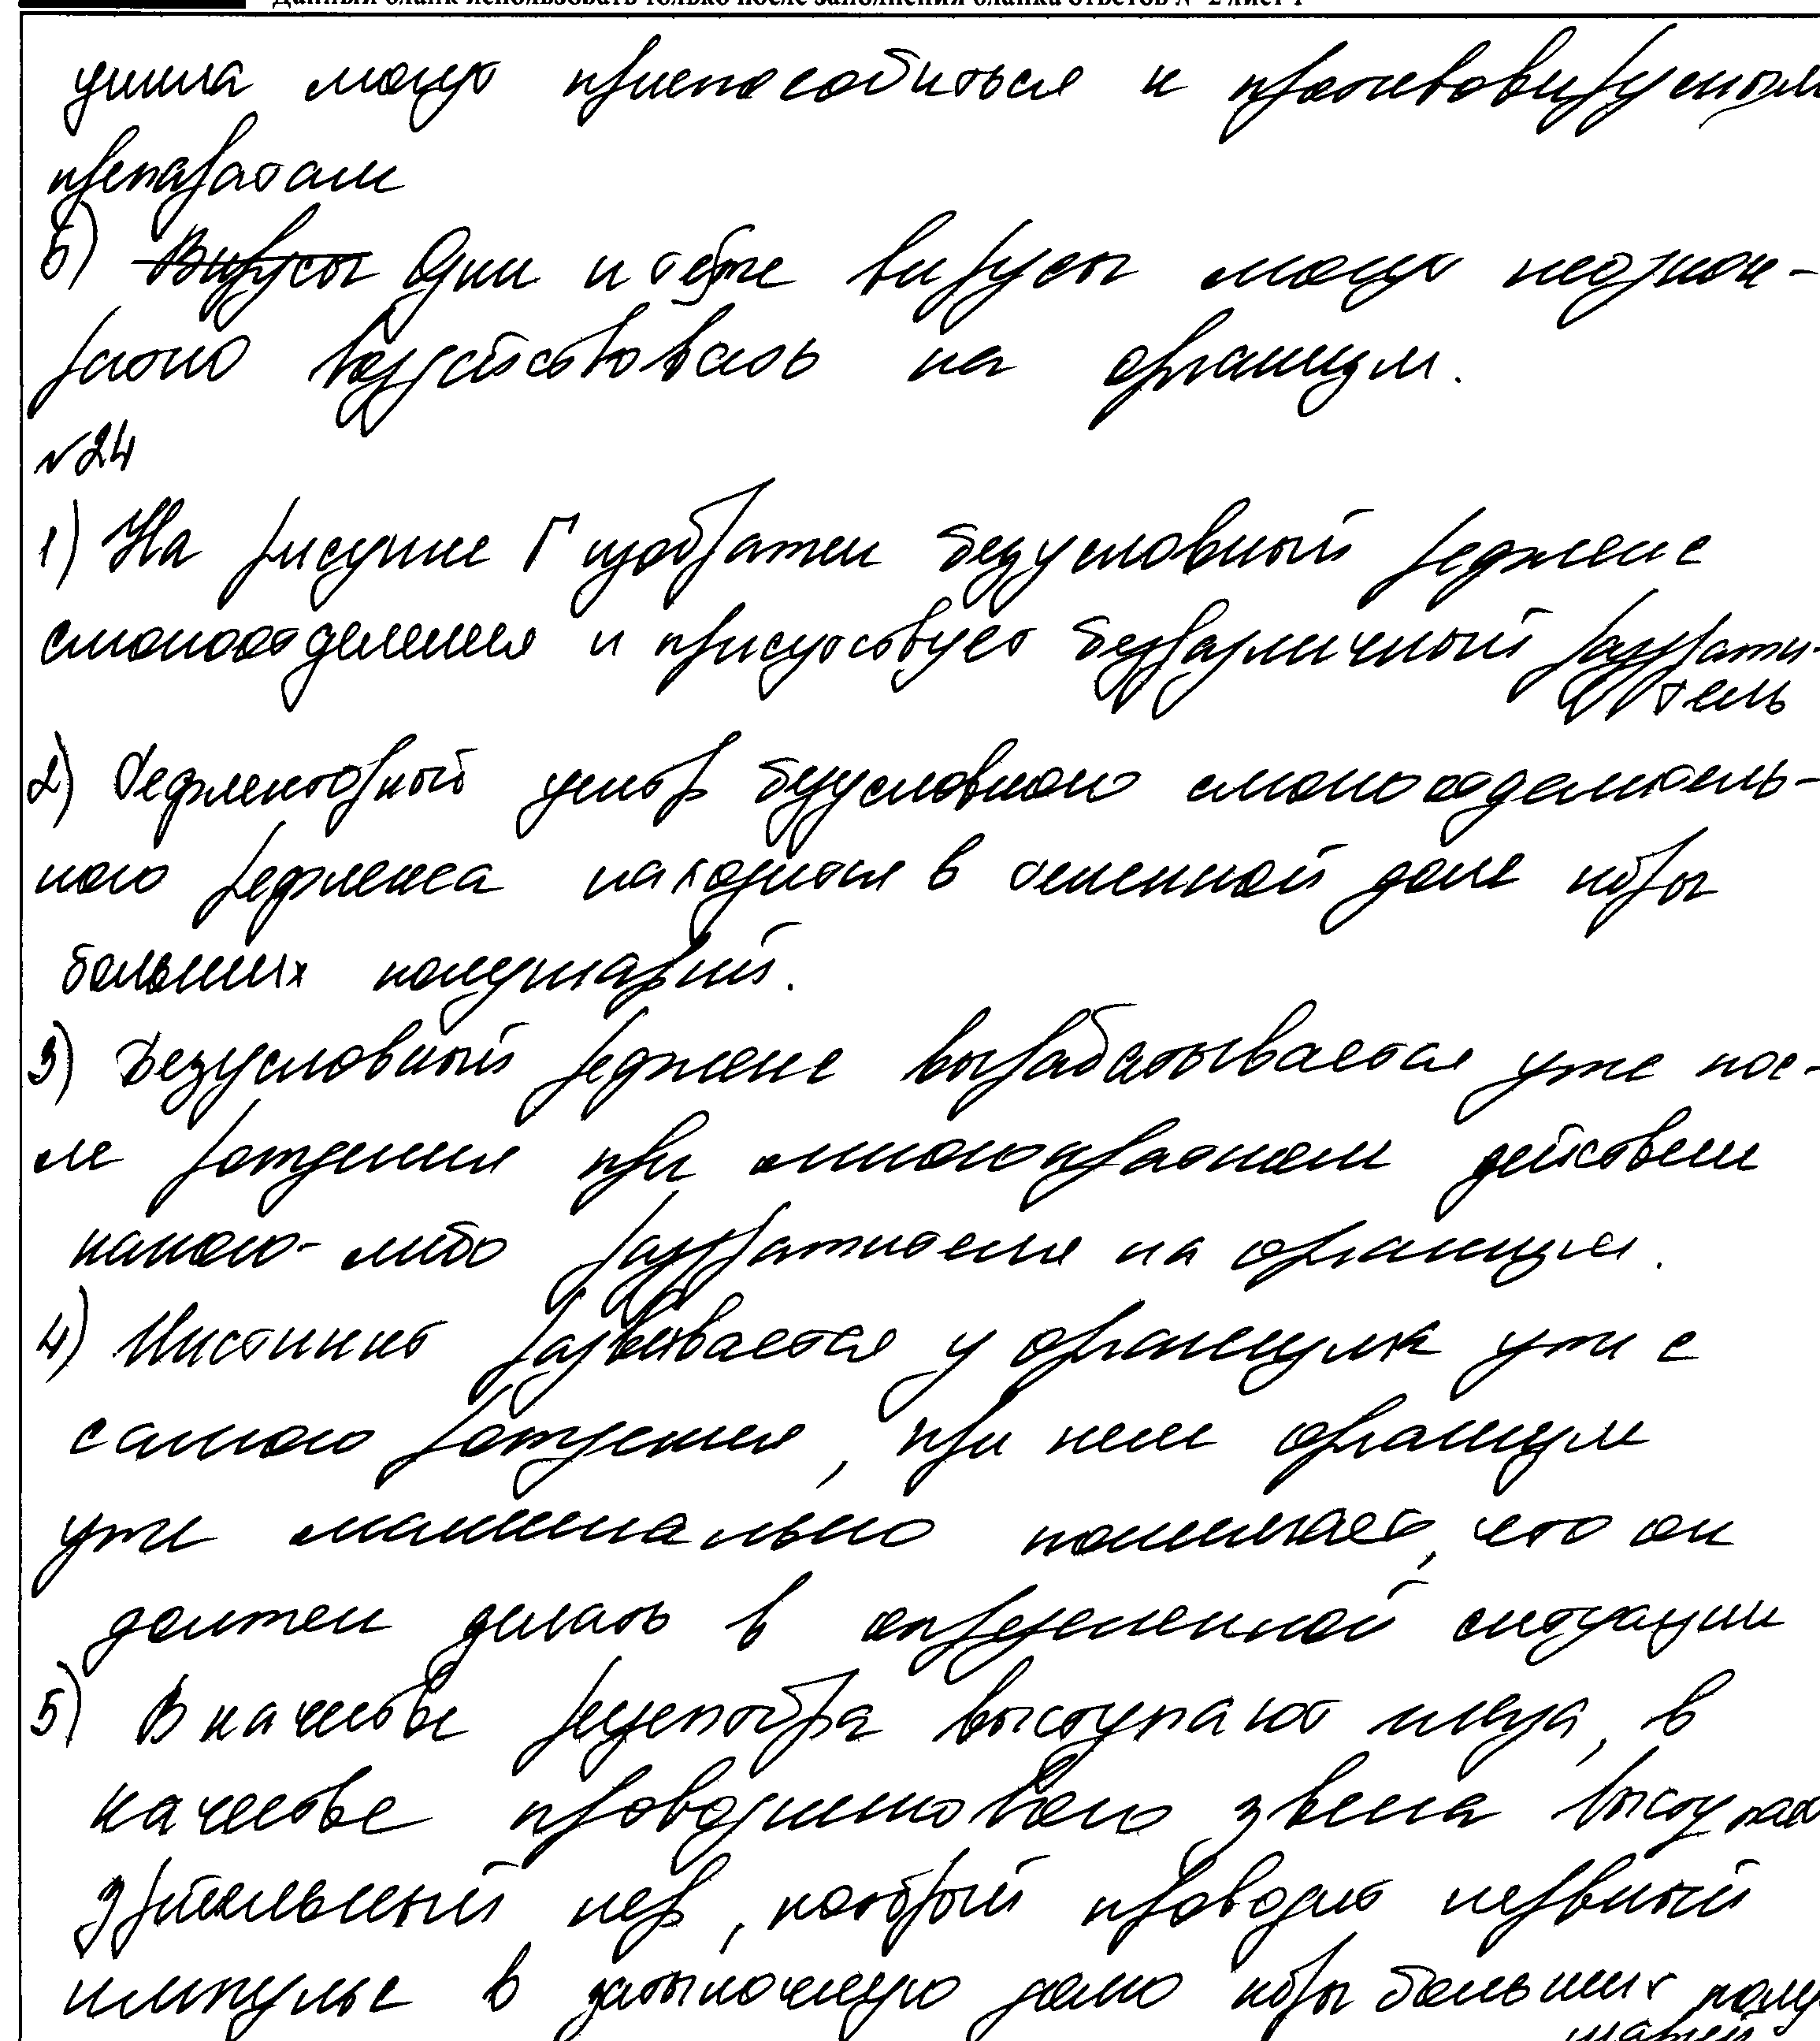 Данный бланк использовать только после заполнения бланка ответов № 2 лист 1
могут приспособиться к противовирусным
препаратам
6) Вирусы Одни и те же вирусы могут неоднок-
ратно воздействовать на организм.
№24
1) На рисунке Г изображен безусловный рефлекс
слюноотделения и присутствует безразличный раздражи-
тель
2) Рефлекторный центр безусловного слюноотделитель-
ного рефлекса находится в теменной доле коры
больших полушарий.
3) Безусловный рефлекс вырабатывается уже пос-
ле рождения при многократном действии
какого-либо раздражителя на организм.
4) Инстинкт развивается у организма уже с
самого рождения, при нем организм
уже машинально понимает, что он
должен делать в определенной ситуации
5) В качестве рецептора выступают глаза, в
качестве проводникового звена выступает
зрительный нерв, который проводит нервный
импульс в затылочную долю коры больших полу
шарий